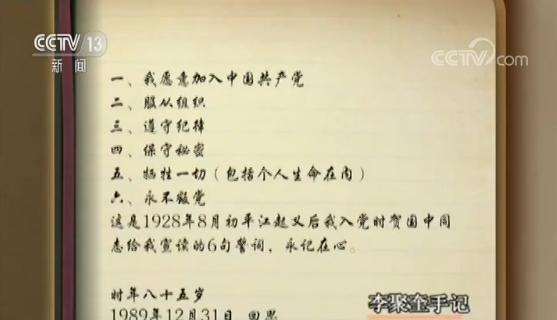 CCTV 13
新闻
CCTV.com
一、我愿意加入中国共产党
二、服从组织
三、遵守纪律
四、保守秘密
五、牺牲一切（包括个人生命在内）
六、永不叛党
这是1928年8月初平江起义后我入党时贺国中同
志给我宣读的6句誓词，永记在心。
时年八十五岁
1989年12月31日 回思
李聚奎手记